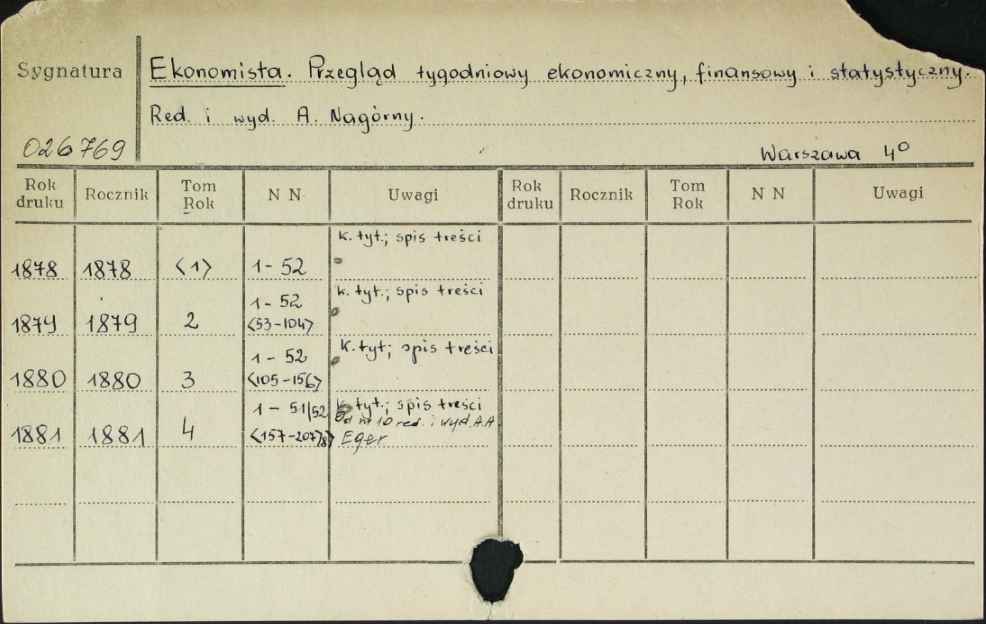 Sygnatura
Ekonomista. Przegląd tygodniowy ekonomiczny, finansowy i statystyczny.
Red. i wyd. A. Nagórny.
026769
Warszawa 4º
Rok druku Rocznik Tom Rok N N Uwagi Rok druku Rocznik Tom Rok N N Uwagi
k. tyt.; spis treści
1878 1878 <1> 1-52
1-52 k. tyt.; spis treści
1879 1879 2 <53-104>
1-52 k. tyt; spis treści
1880 1880 3 <105-156>
1-51/52 k. tyt.; spis treści
Od nr 10 red. i wyd. A.A.
1881 1881 4 <157-207/8> Eger